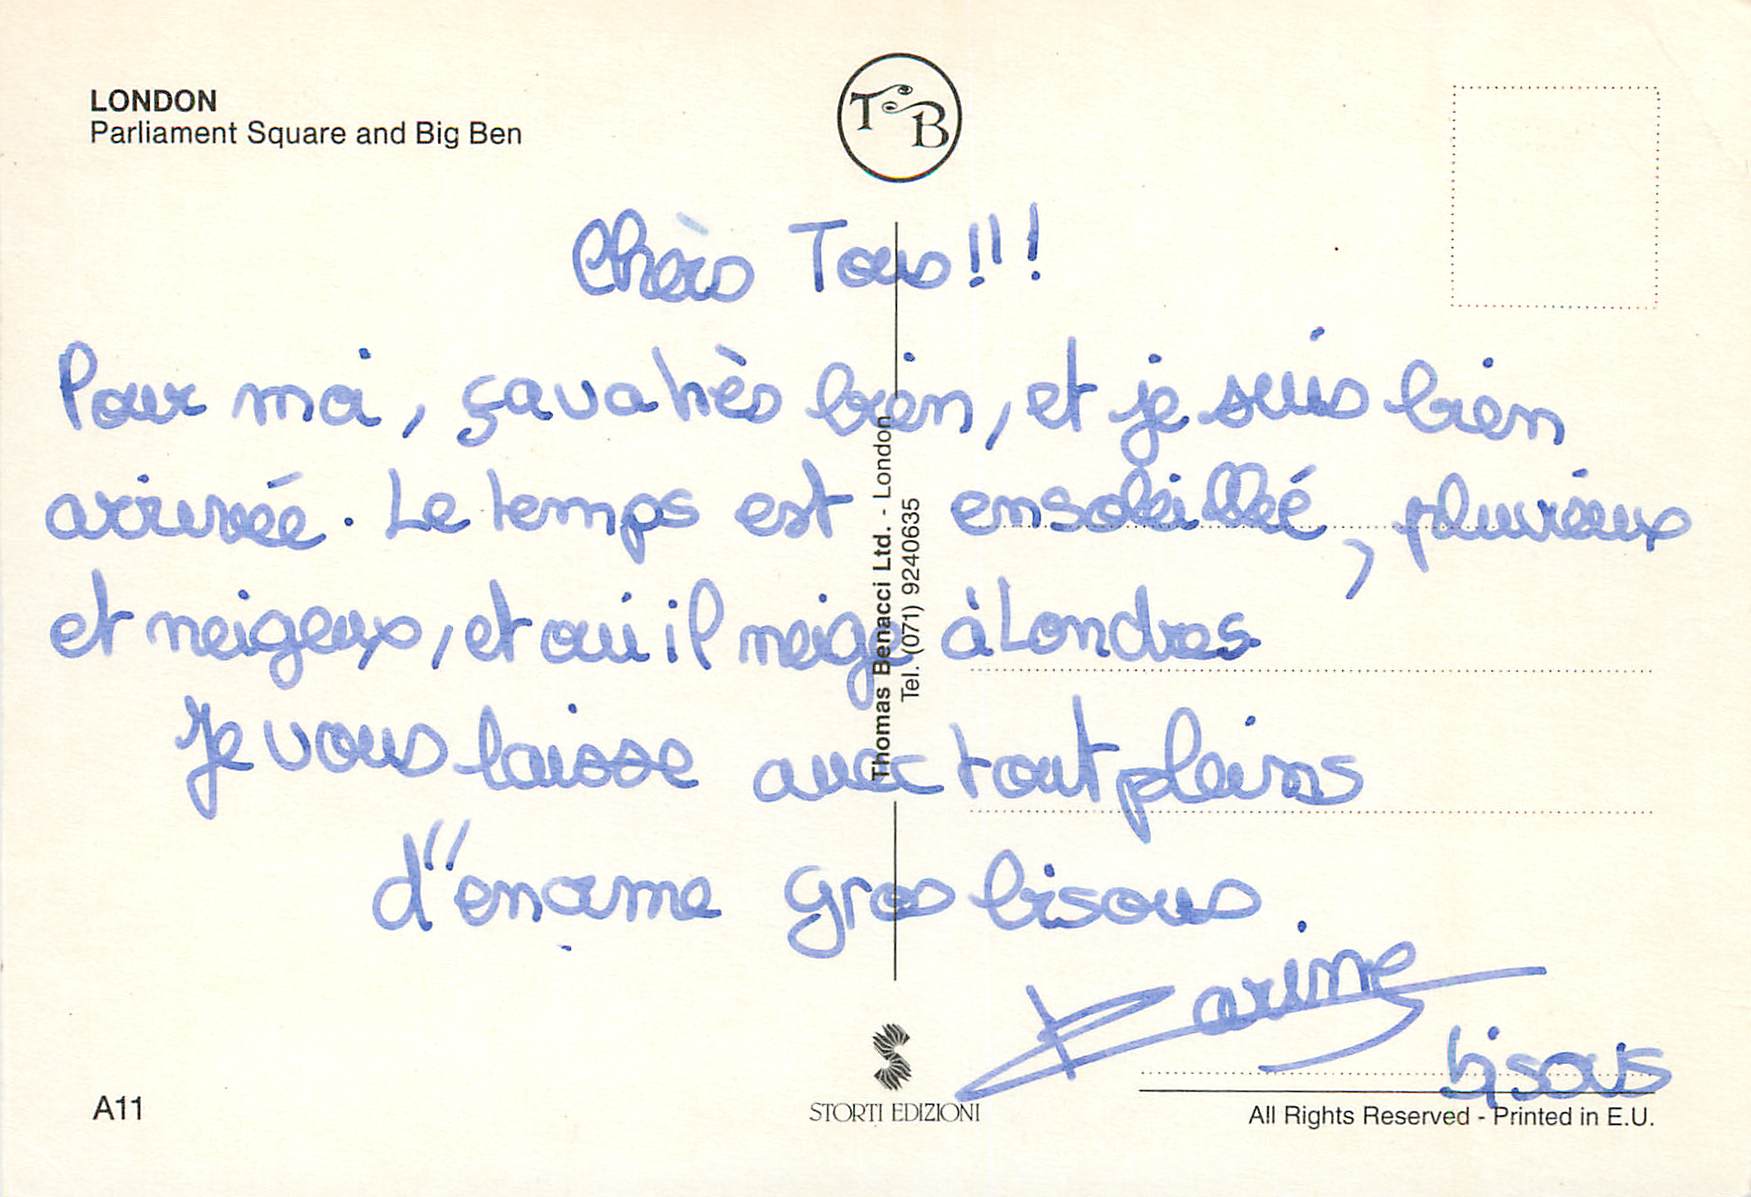 LONDON
Parliament Square and Big Ben
T B
Chèrs Tous!!!
Pour moi, ça va très bien, et je suis bien
arrivée. Le temps est ensoleillé, pluvieux
et neigeux, et oui il neige à Londres
Je vous laisse avec tout pleins
d'énorme gros bisous.
Karine
bisous
Thomas Benacci Ltd. - London
Tel. (071) 9240635
A11
STORTI EDIZIONI
All Rights Reserved - Printed in E.U.